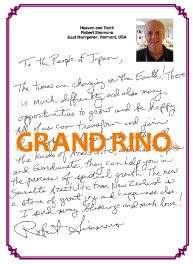 Heaven and Earth
Robert Simmons
East Montpelier, Vermont, USA
To the People of Japan,
The times are changing on the Earth! There
is much difficulty and also many
opportunities to grow and be happy
All of us can transform and join
GRAND RINO
the kinds of
and Guardianite, they can help you in
the process of spiritual growth. The new
from New Zealand is
a stone of great joy and happiness also.
I send many blessings and much love!
Robert Simmons